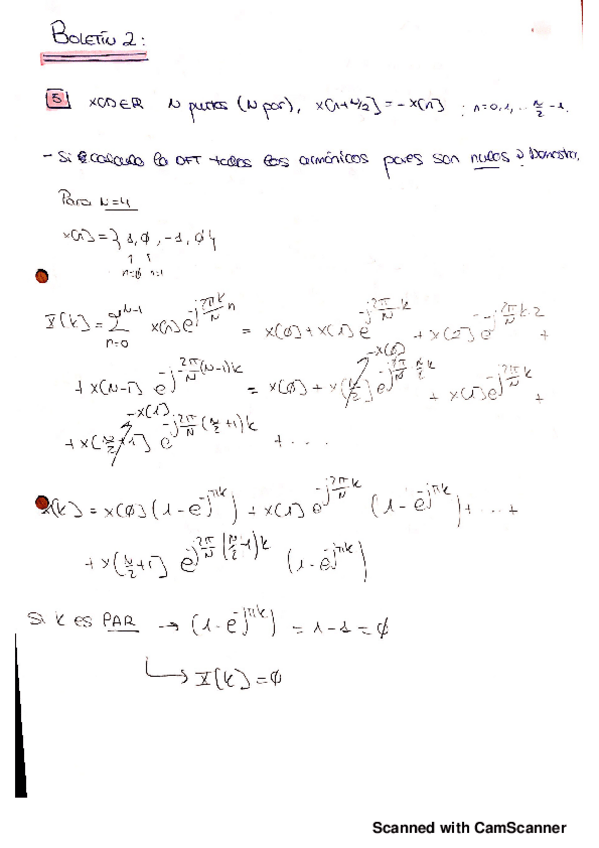 BOLETÍN 2:
5 x[n] ∈ R N puntos (N par), x[n+N/2] = -x[n] : n=0,1,.. N/2 -1.
- Si calculado la DFT todos los armónicos pares son nulos ? Demostrar
Para N=4
x[n] = { 1, ∅, -1, ∅ }
n=∅ n=1
X[k] = Σ_{n=0}^{N-1} x[n] e^{-j 2πk/N n} = x[∅] + x[1] e^{-j 2π/N k} + x[2] e^{-j 2π/N k·2} +
+ x[N-1] e^{-j 2π/N (N-1)k} = x[∅] + x[N/2] e^{-j 2π/N N/2 k} + x[1] e^{-j 2π/N k} +
-x[∅]
-x[1]
+ x[N/2+1] e^{-j 2π/N (N/2+1)k} + ....
X[k] = x[∅] (1 - e^{-jπk}) + x[1] e^{-j 2π/N k} (1 - e^{-jπk}) + ... +
+ x[N/2+1] e^{-j 2π/N (N/2-1)k} (1 - e^{-jπk})
Si k es PAR → (1 - e^{-jπk}) = 1 - 1 = ∅
↳ X[k] = ∅
Scanned with CamScanner